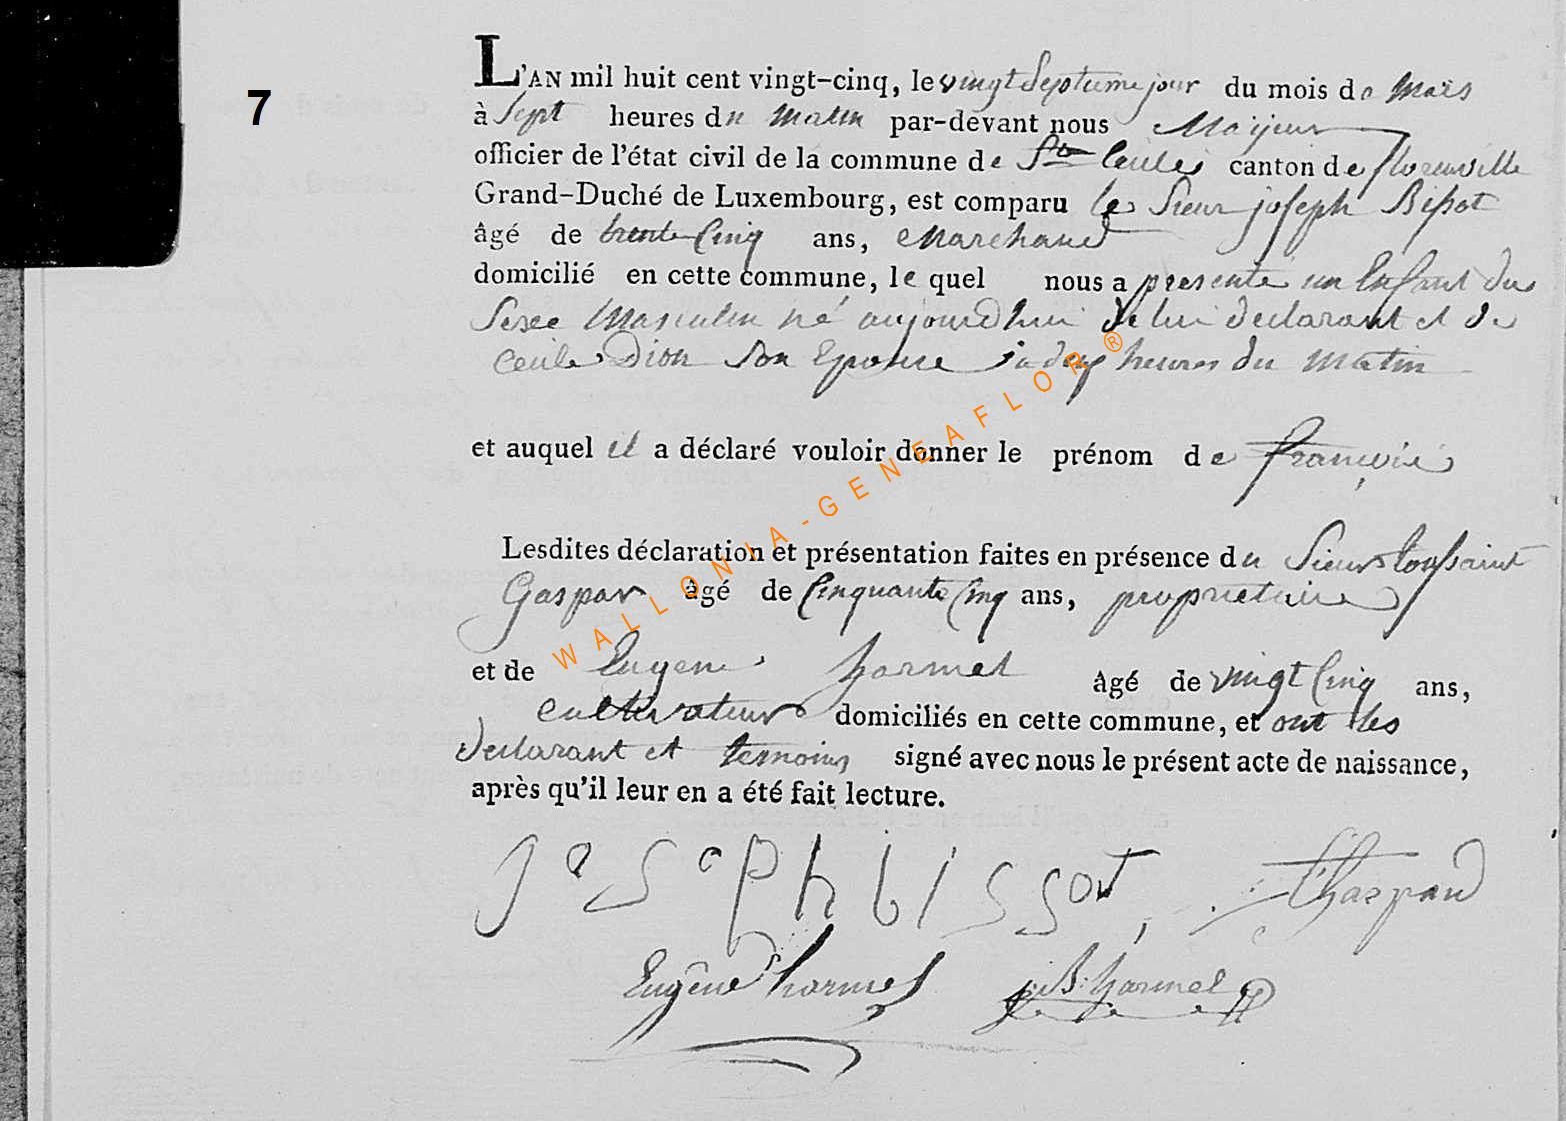 7
L'AN mil huit cent vingt-cinq, le vingt Septieme jour du mois de Mars
à Sept heures du Matin par-devant nous Maijeur
officier de l'état civil de la commune de Ste Cecile canton de florenville
Grand-Duché de Luxembourg, est comparu le Sieur joseph Bissot
âgé de trente Cinq ans, Marchand
domicilié en cette commune, lequel nous a presenté un Enfant du
Sexe Masculin né aujourdhui de lui declarant et de
Cecile Dion Son Epouse a deux heures du Matin
et auquel il a déclaré vouloir donner le prénom de françois
Lesdites déclaration et présentation faites en présence du Sieur toussaint
Gaspar âgé de Cinquante Cinq ans, proprietaire
et de Eugene hormel âgé de vingt Cinq ans,
cultivateur domiciliés en cette commune, et ont les
declarant et temoins signé avec nous le présent acte de naissance,
après qu'il leur en a été fait lecture.
Joseph bissot
Eugêne hormel j: B: hormel
WALLONIA-GENEAFLOR ®